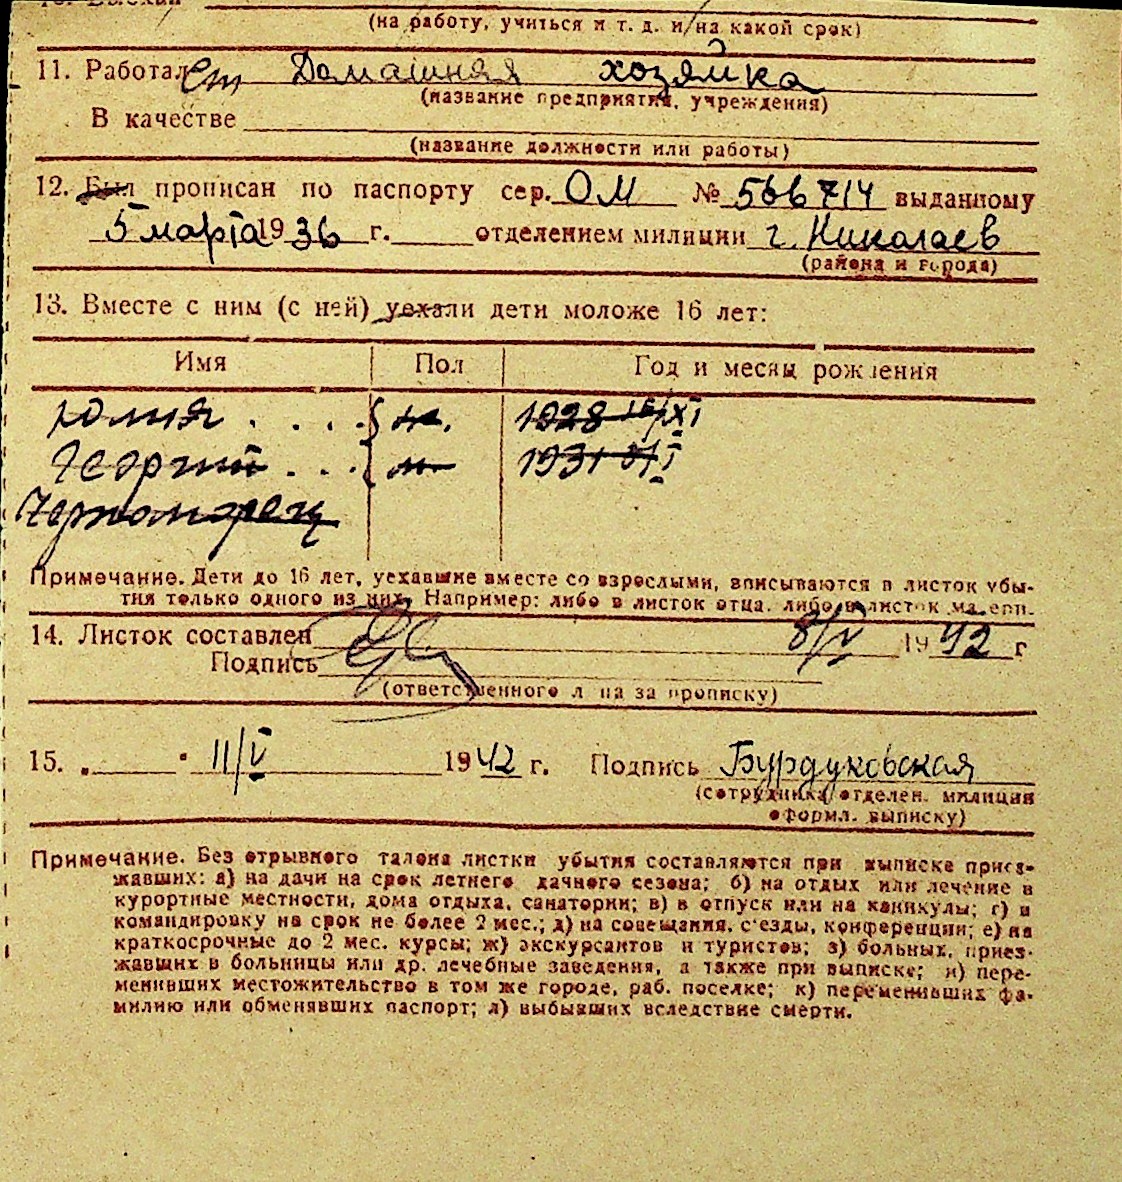 (на работу, учиться и т. д. и на какой срок)
11. Работал ет Домашняя хозяйка
(название предприятия, учреждения)
В качестве
(название должности или работы)
12. Был прописан по паспорту сер. ОМ № 566714 выданному
5 марта 1936 г. отделением милиции г. Николаев
(района и города)
13. Вместе с ним (с ней) уехали дети моложе 16 лет:
Имя Пол Год и месяц рождения
Юлия . . . . ж. 1928 16/XI
Георгий . . . м 1931
Черноморец
Примечание. Дети до 16 лет, уехавшие вместе со взрослыми, вписываются в листок убы-
тия только одного из них. Например: либо в листок отца, либо в листок матери.
14. Листок составлен 8/V 1942 г
Подпись
(ответственного лица за прописку)
15. „ " 11/V 1942 г. Подпись Бурдуковская
(сотрудника отделен. милиции
оформл. выписку)
Примечание. Без отрывного талона листки убытия составляются при выписке приез-
жавших: а) на дачи на срок летнего дачного сезона; б) на отдых или лечение в
курортные местности, дома отдыха, санатории; в) в отпуск или на каникулы; г) в
командировку на срок не более 2 мес.; д) на совещания, с'езды, конференции; е) на
краткосрочные до 2 мес. курсы; ж) экскурсантов и туристов; з) больных, приез-
жавших в больницы или др. лечебные заведения, а также при выписке; и) пере-
менивших местожительство в том же городе, раб. поселке; к) переменивших фа-
милию или обменявших паспорт; л) выбывших вследствие смерти.